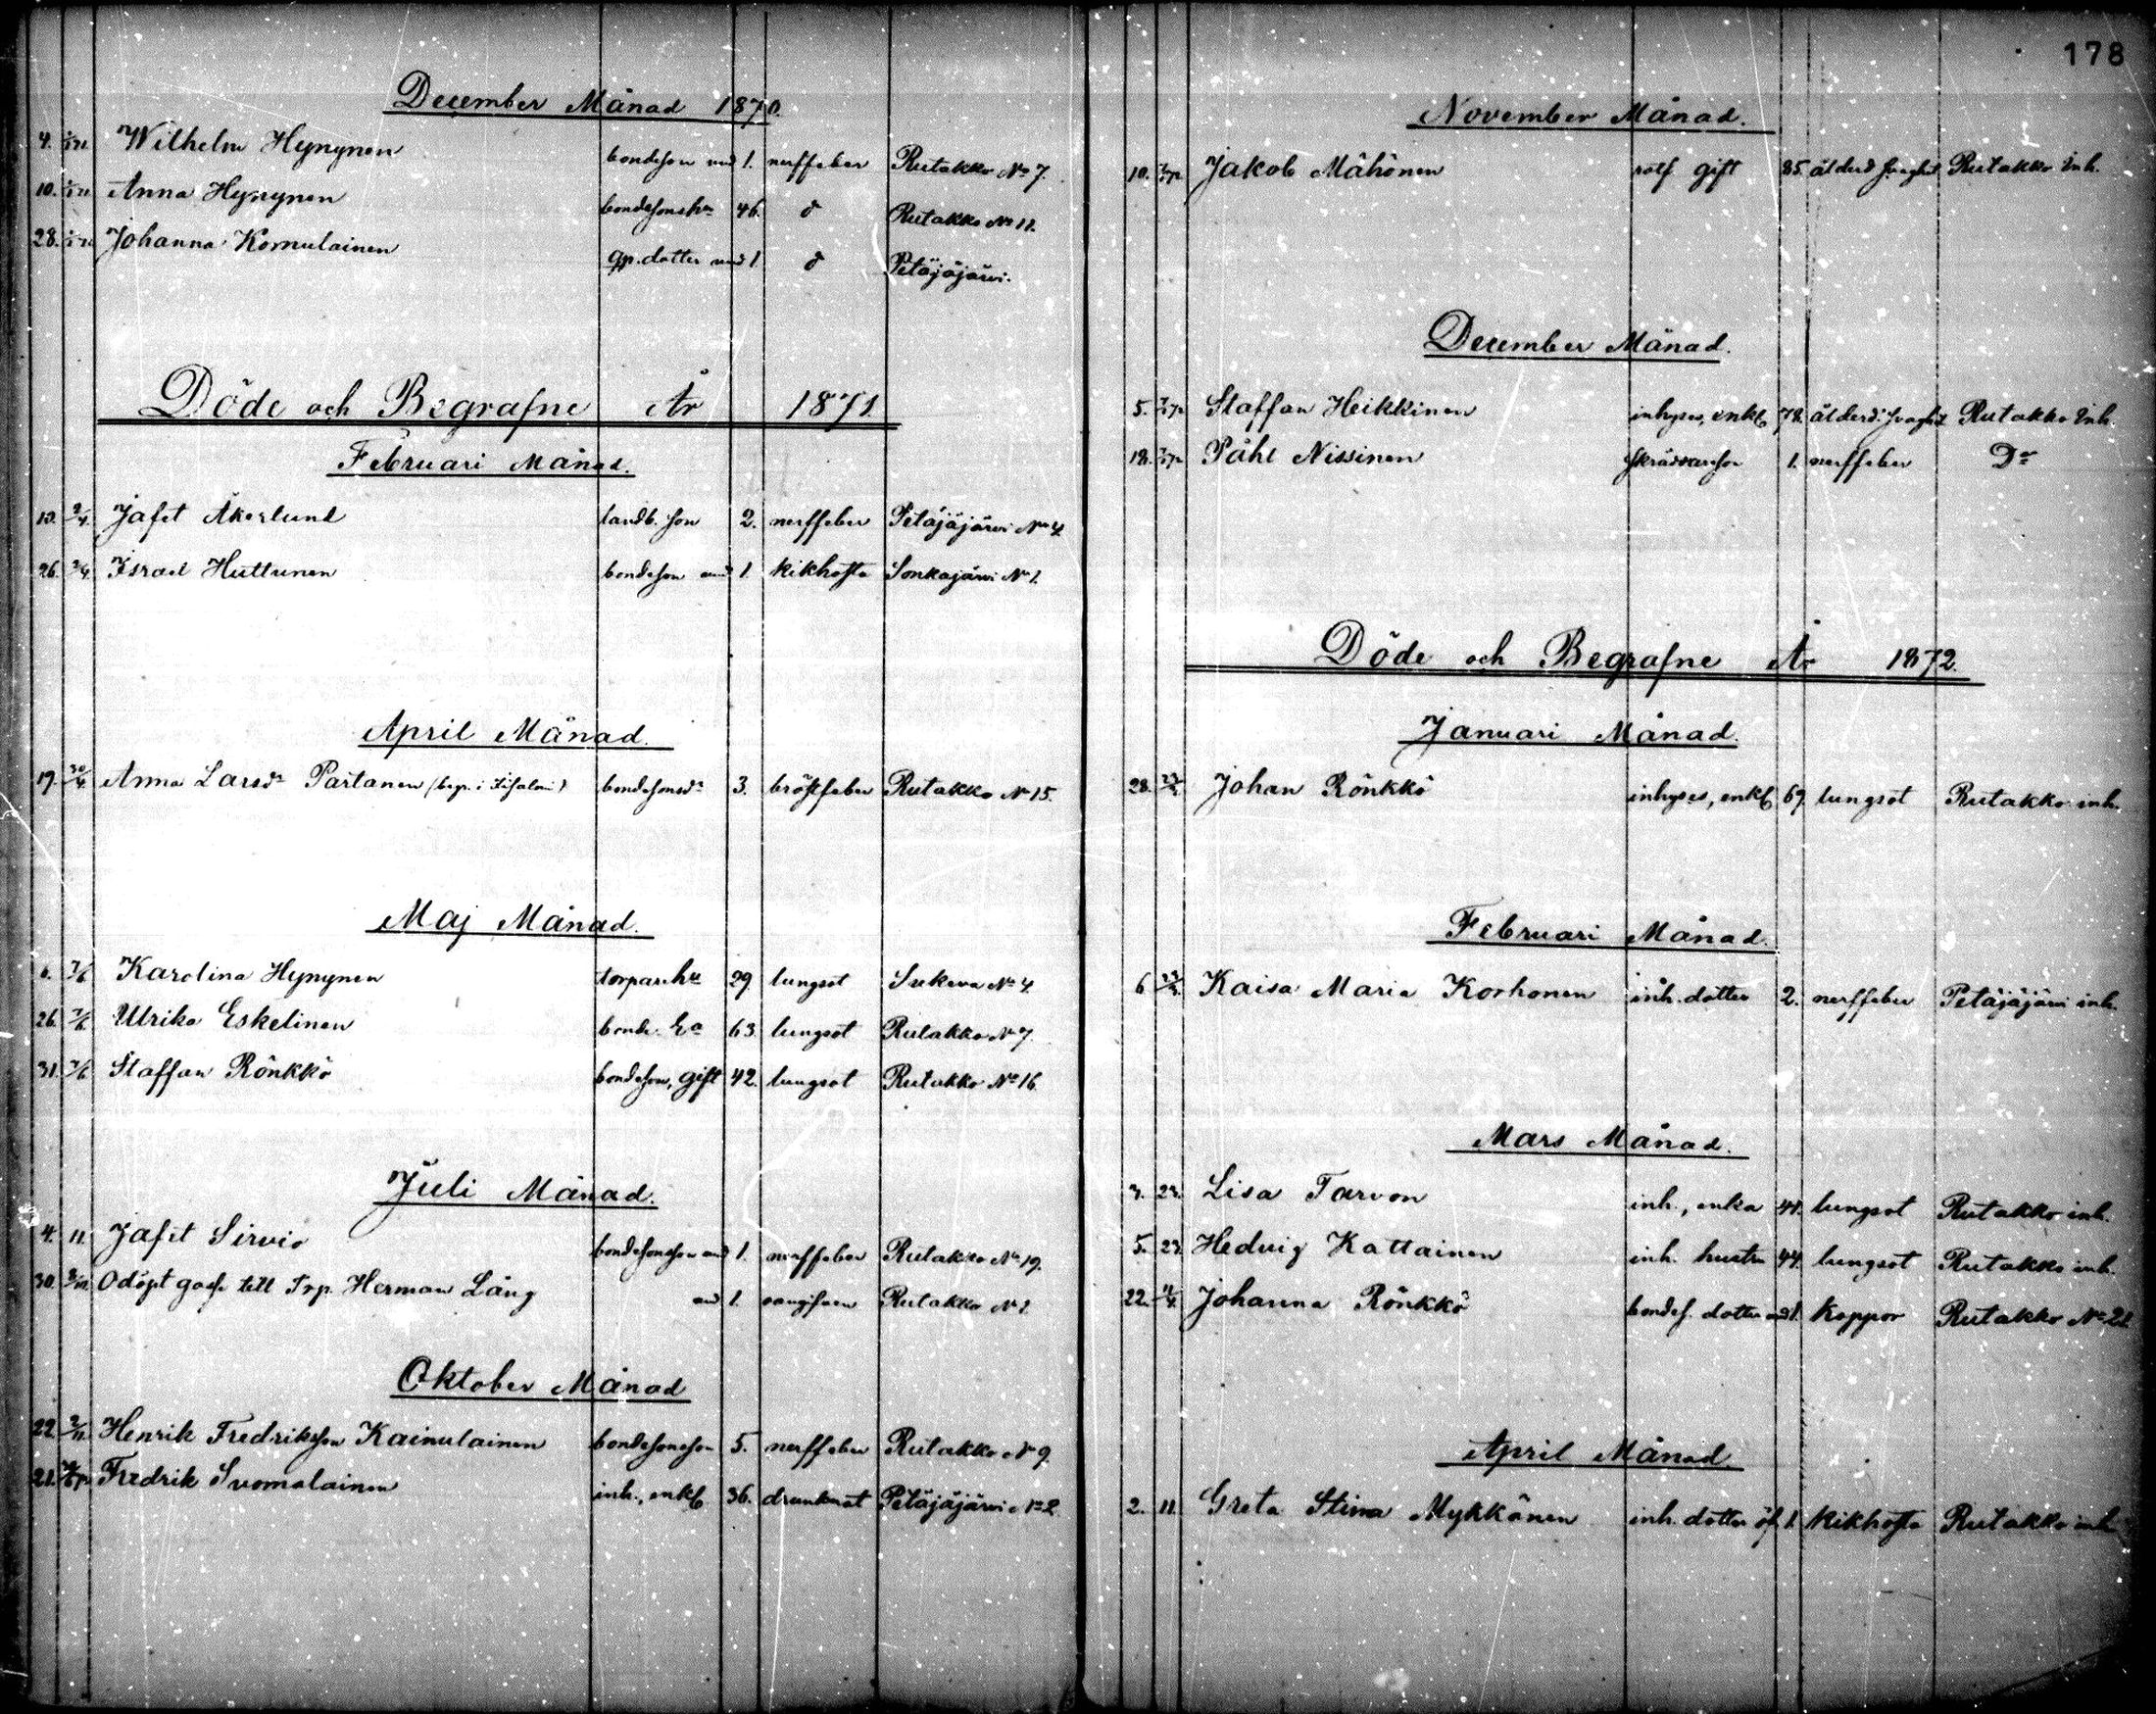 December Månad 1870.
4. Wilhelm Hynynen bondeson und 1. nerffeber Rutakko No 7.
10. Anna Hynynen bondesonshu 46. d Rutakko No 11.
28. Johanna Komulainen gp. dotter und 1 d Petäjäjärvi.
Döde och Begrafne År 1871
Februari Månad.
13. 2/4. Jafet Åkerlund landb. son 2. nerffeber Petäjäjärvi No 4.
26. 2/4. Israel Huttunen bondeson und 1. kikhosta Sonkajärvi No 1.
April Månad.
17. 30/4. Anna Larsdr Partanen (begr. i Iisalmi) bondesonsdr 3. bröstfeber Rutakko No 15.
Maj Månad.
6. 7/6 Karolina Hynynen torparehu 29 lungsot Sukeva No 4.
26. 7/6 Ulrika Eskelinen bonde Ea 63. lungsot Rutakko No 7.
31. 7/6 Staffan Rönkkö bondeson, gift 42. lungsot Rutakko No 16.
Juli Månad.
4. 11. Jafet Sirviö bondesonson und 1. nerffeber Rutakko No 19.
30. Odöpt gosse till Trp. Herman Lång und 1. oangifven Rutakko No 1.
Oktober Månad
22. 2/11. Henrik Fredriksson Kainulainen bondesonson 5. nerffeber Rutakko No 9.
21. Fredrik Suomalainen inh., enkl 36. drunknat Petäjäjärvi No 2.
178
November Månad.
10. Jakob Mähönen rotf gift 85. ålderd. svaghet Rutakko Inh.
December Månad.
5. Staffan Heikkinen inhyses, enkl 78. ålderd. svaghet Rutakko Inh.
18. Påhl Nissinen skräddareson 1. nerffeber Do
Döde och Begrafne År 1872.
Januari Månad.
28. Johan Rönkkö inhyses, enkl 69. lungsot Rutakko inh.
Februari Månad.
6 Kaisa Maria Korhonen inh. dotter 2. nerffeber Petäjäjärvi inh.
Mars Månad.
3. 23. Lisa Tarvon inh., enka 41. lungsot Rutakko inh.
5. 23. Hedvig Kattainen inh. hustru 44. lungsot Rutakko inh.
22. 11/4. Johanna Rönkkö bondes. dotter und 1. koppor Rutakko No 21.
April Månad
2. 11. Greta Stina Mykkänen inh. dotter öf. 1. kikhosta Rutakko inh